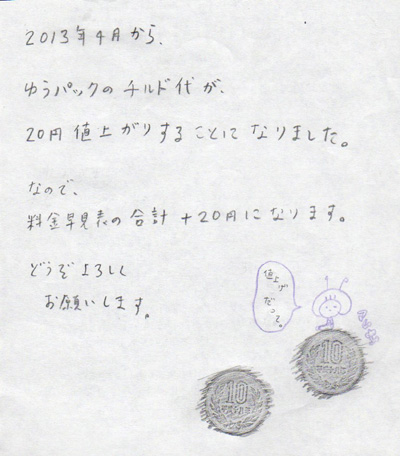 2013年4月から、
ゆうパックのチルド代が、
20円値上がりすることになりました。
なので、
料金早見表の合計+20円になります。
どうぞよろしく
お願いします。
値上げ
だって。
10
10